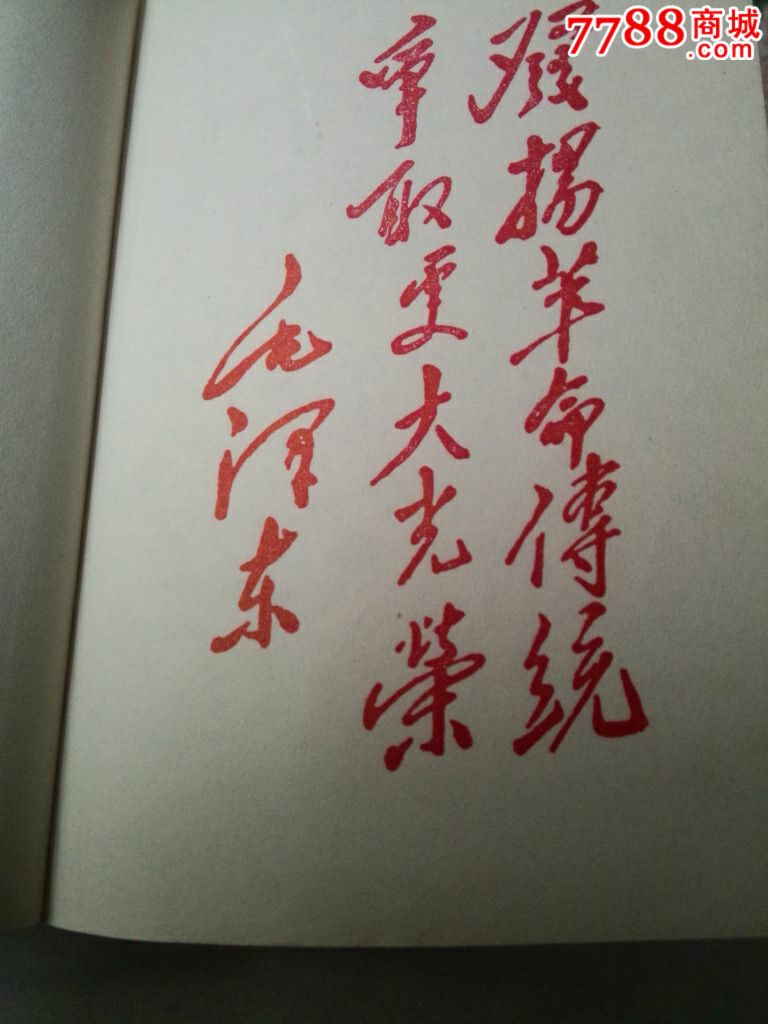 7788商城
.com
發揚革命傳統
争取更大光榮
毛澤东